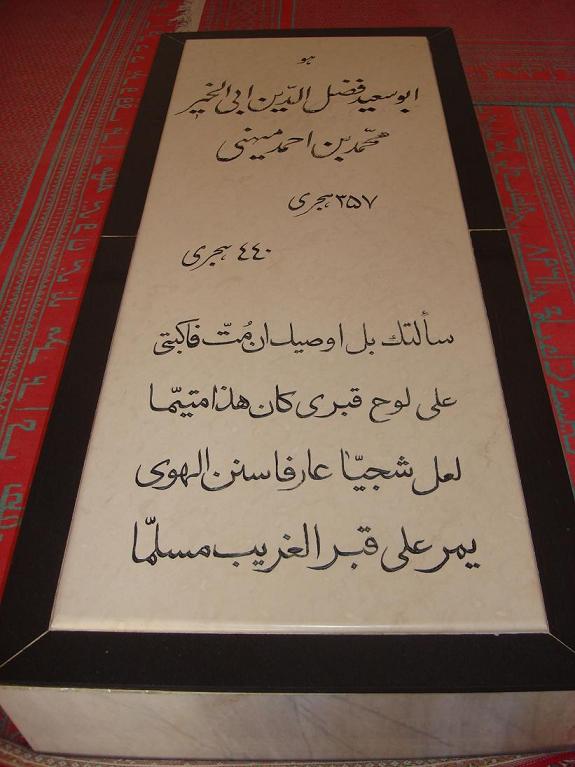 هو
ابو سعید فضل الدّین ابی الخیر
محمّد بن احمد میهنی
۳۵۷ هجری
٤٤٠ هجری
سألتك بل اوصیك ان مُتّ فاکتبی
علی لوح قبری کان هذا متیّما
لعل شجیّا عارفا سنن الهوی
یمر علی قبر الغریب مسلّما